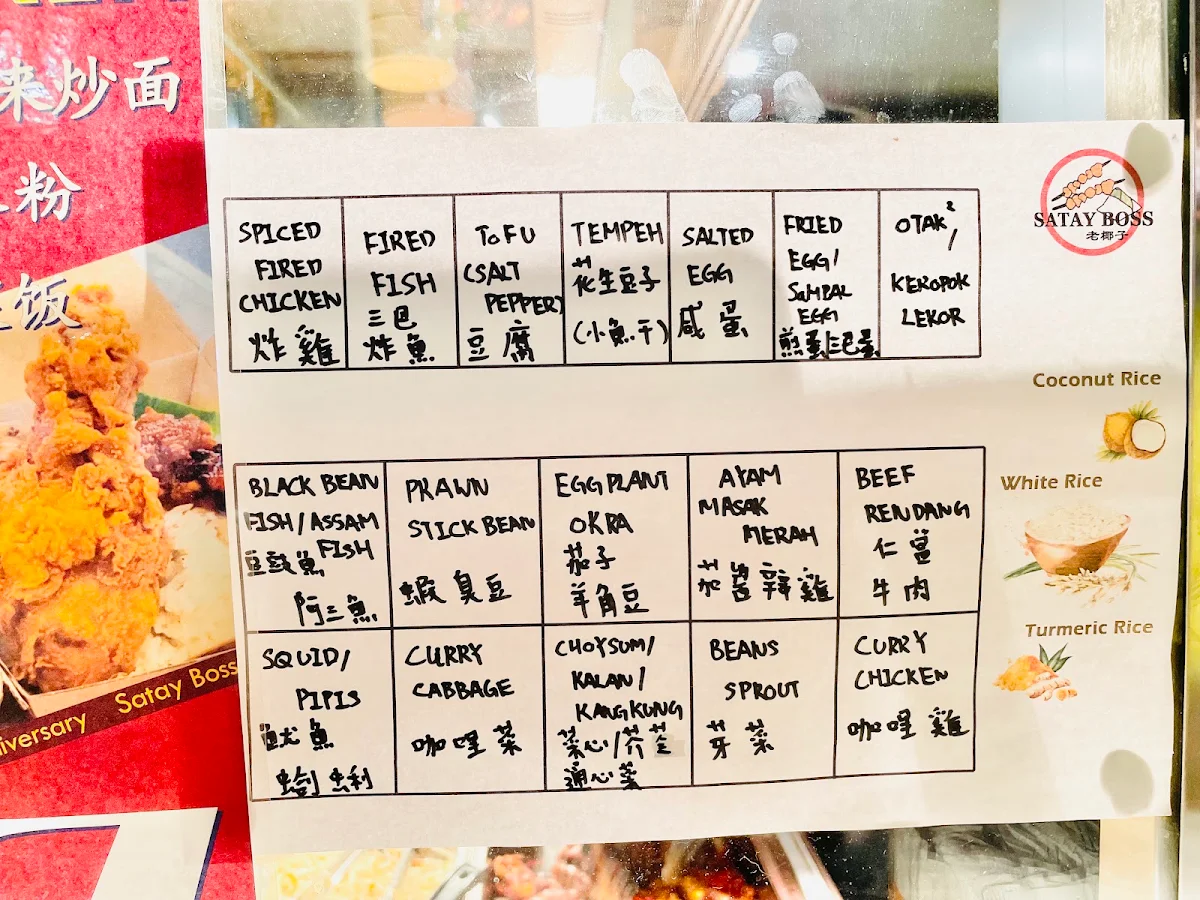 来炒面
粉
饭
SPICED
FIRED
CHICKEN
炸雞
FIRED
FISH
三巴
炸魚
TOFU
(SALT
PEPPER)
豆腐
TEMPEH
花生豆子
(小魚干)
SALTED
EGG
咸蛋
FRIED
EGG/
SAMBAL
EGG
煎蛋/三巴蛋
OTAK²/
KEROPOK
LEKOR
SATAY BOSS
老椰子
Coconut Rice
White Rice
Turmeric Rice
BLACK BEAN
FISH/ASSAM
FISH
豆豉魚
阿三魚
PRAWN
STICK BEAN
蝦臭豆
EGGPLANT
OKRA
茄子
羊角豆
AYAM
MASAK
MERAH
茄醬辣雞
BEEF
RENDANG
仁薑
牛肉
SQUID/
PIPIS
魷魚
CURRY
CABBAGE
咖哩菜
CHOYSUM/
KALAN/
KANGKUNG
菜心/芥兰
通心菜
BEANS
SPROUT
芽菜
CURRY
CHICKEN
咖哩雞
iversary Satay Boss